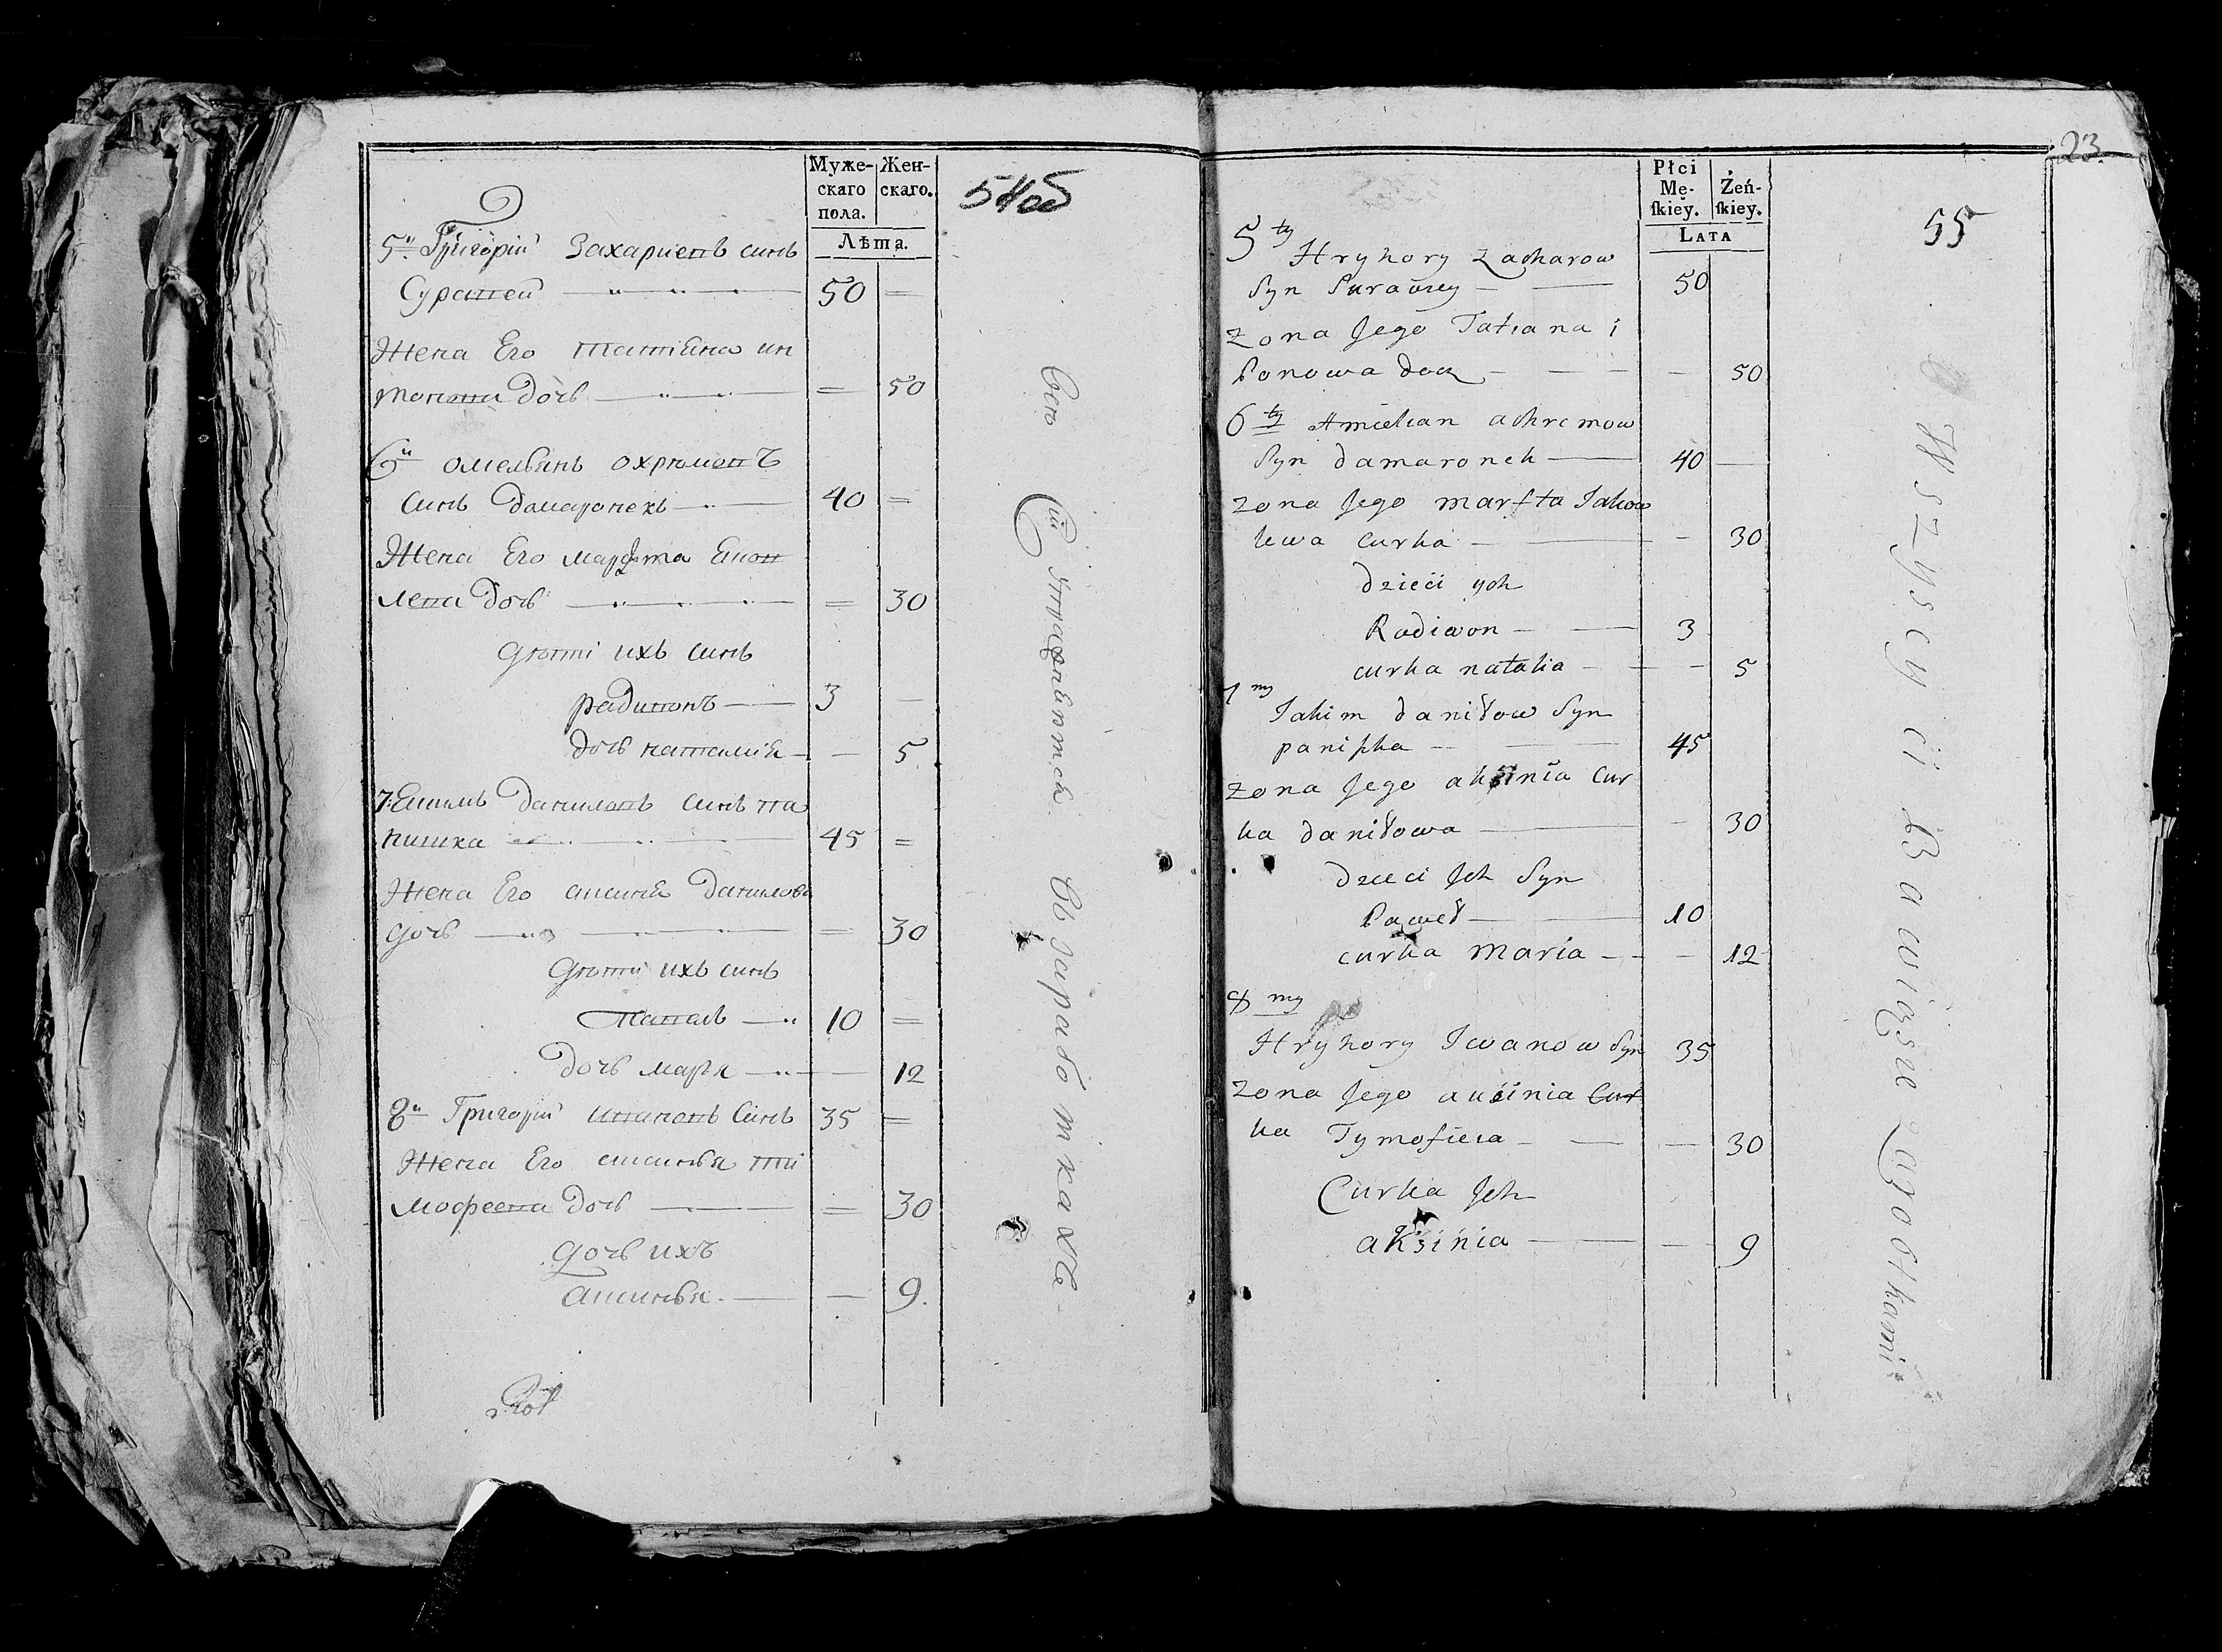 Муже-
скаго
пола.
Жен-
скаго.
Лѣта.
54об
5й Григорій Захариевъ синъ
Суравей 50
Жена Его татіена ип
50
6й омелянъ охрѣмовъ
синъ дамаронекъ 40
Жена Его марфта
лева дочь 30
дѣти ихъ синъ
радивонъ 3
дочь наталія 5
7 даниловъ синъ па
нишка 45
Жена Его данилова
дочь 30
дѣти ихъ синъ
Павелъ 10
дочь 12
8й Григорій ивановъ синъ 35
Жена Его ти
мофеева дочь 30
дочь ихъ
9.
Всѣ Сіи
Въ заработкахъ
23
Płci
Mę-
skiey.
Żeń-
skiey.
LATA
55
5ty Hryhory Zacharow
Syn 50
zona Jego Tatiana i
Ponowa 50
6ty Amielian achremow
Syn damaronek 40
zona Jego marfta Jakow
lewa curka 30
dzieci ych
Radiwon 3
curka natalia 5
7my
Jakim daniłow Syn
paniszka 45
zona Jego aksinia Cur
ka daniłowa 30
dzieci Jch Syn
Paweł 10
curka Maria 12
8my
Hryhory Iwanow Syn 35
zona Jego auśinia Cur
ka Tymofieia 30
Curka Jch
aksinia 9
Wszyscy ci Bawiące